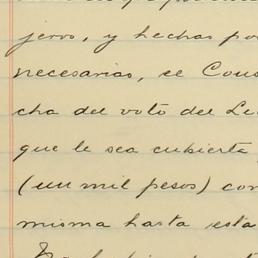 jeros, y hechas po
necesarias, se Cons
cha del voto del Lu
que le sea cubierta
(un mil pesos) con
misma hasta esta